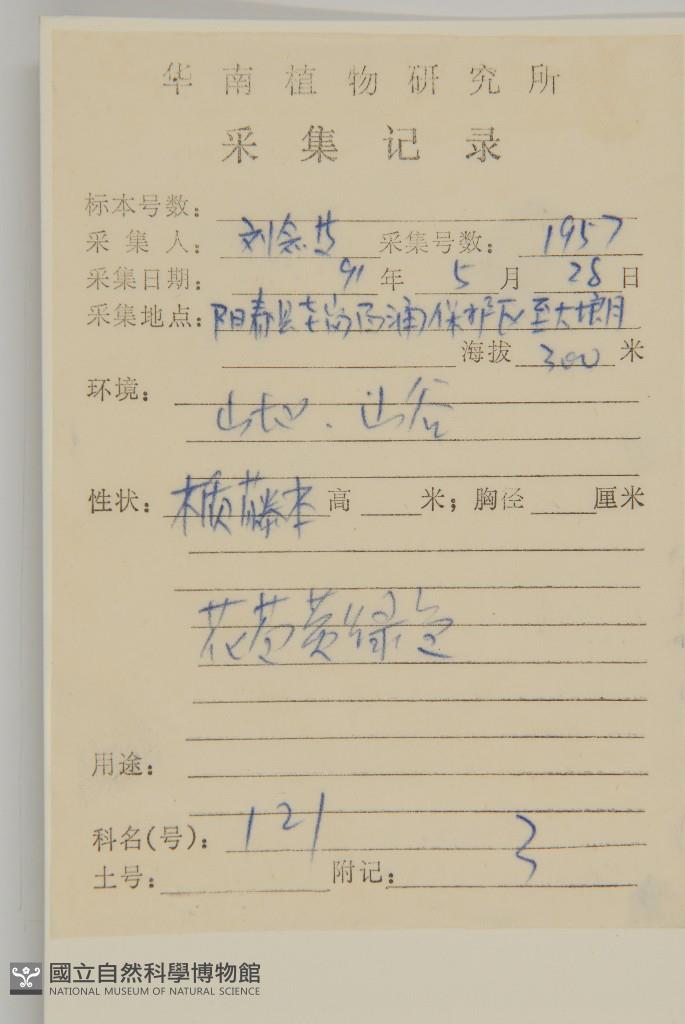 华南植物研究所
采集记录
标本号数：
采集人：刘念 采集号数：1957
采集日期：91年5月28日
采集地点：阳春县 保护区至大
海拔300米
环境：
山地．山谷
性状：木质藤本 高 米；胸径 厘米
花苞黄绿色
用途：
科名(号)：121
土号： 附记：3
國立自然科學博物館
NATIONAL MUSEUM OF NATURAL SCIENCE